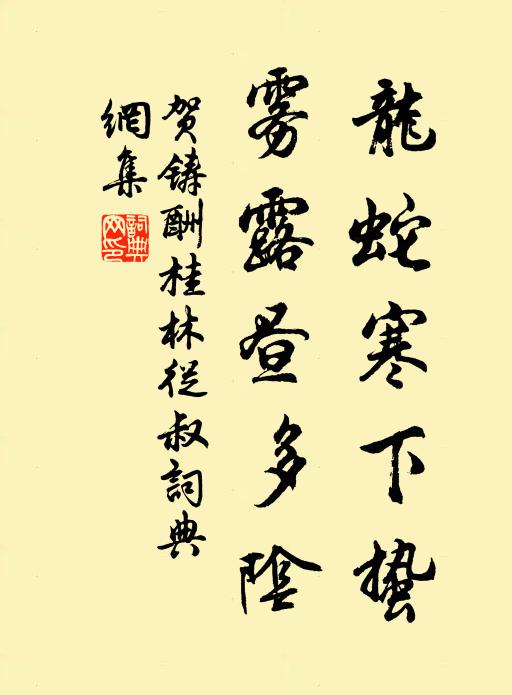 龍蛇寒下蟄
雾露昼多陰
贺鋳酬桂林従叔詞典
網集
詞典
网印